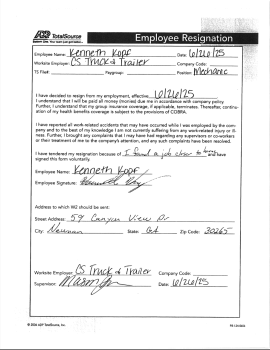 ADP TotalSource
Employee Resignation
Employee Name: Kenneth Kopf Date: 6/26/25
Worksite Employer: CS Truck & Trailer Company Code:
TS File#: Paygroup: Position: Mechanic
I have decided to resign from my employment, effective 6/26/25
I understand that I will be paid all money (monies) due me in accordance with company policy.
Further, I understand that my group insurance coverage, if applicable, terminates. Thereafter, continua-
tion of my health benefits coverage is subject to the provisions of COBRA.
I have reported all work-related accidents that may have occurred while I was employed by the com-
pany and to the best of my knowledge I am not currently suffering from any work-related injury or ill-
ness. Further, I brought any complaints that I may have had regarding any supervisors or co-workers
or their treatment of me to the company's attention, and any such complaints have been resolved.
I have tendered my resignation because of I found a job closer to home and have
signed this form voluntarily.
Employee Name: Kenneth Kopf
Employee Signature:
Address to which W2 should be sent:
Street Address: 59 Canyon View Dr
City: Newnan State: GA Zip Code: 30265
Worksite Employer: CS Truck & Trailer Company Code:
Supervisor: Date: 6/26/25